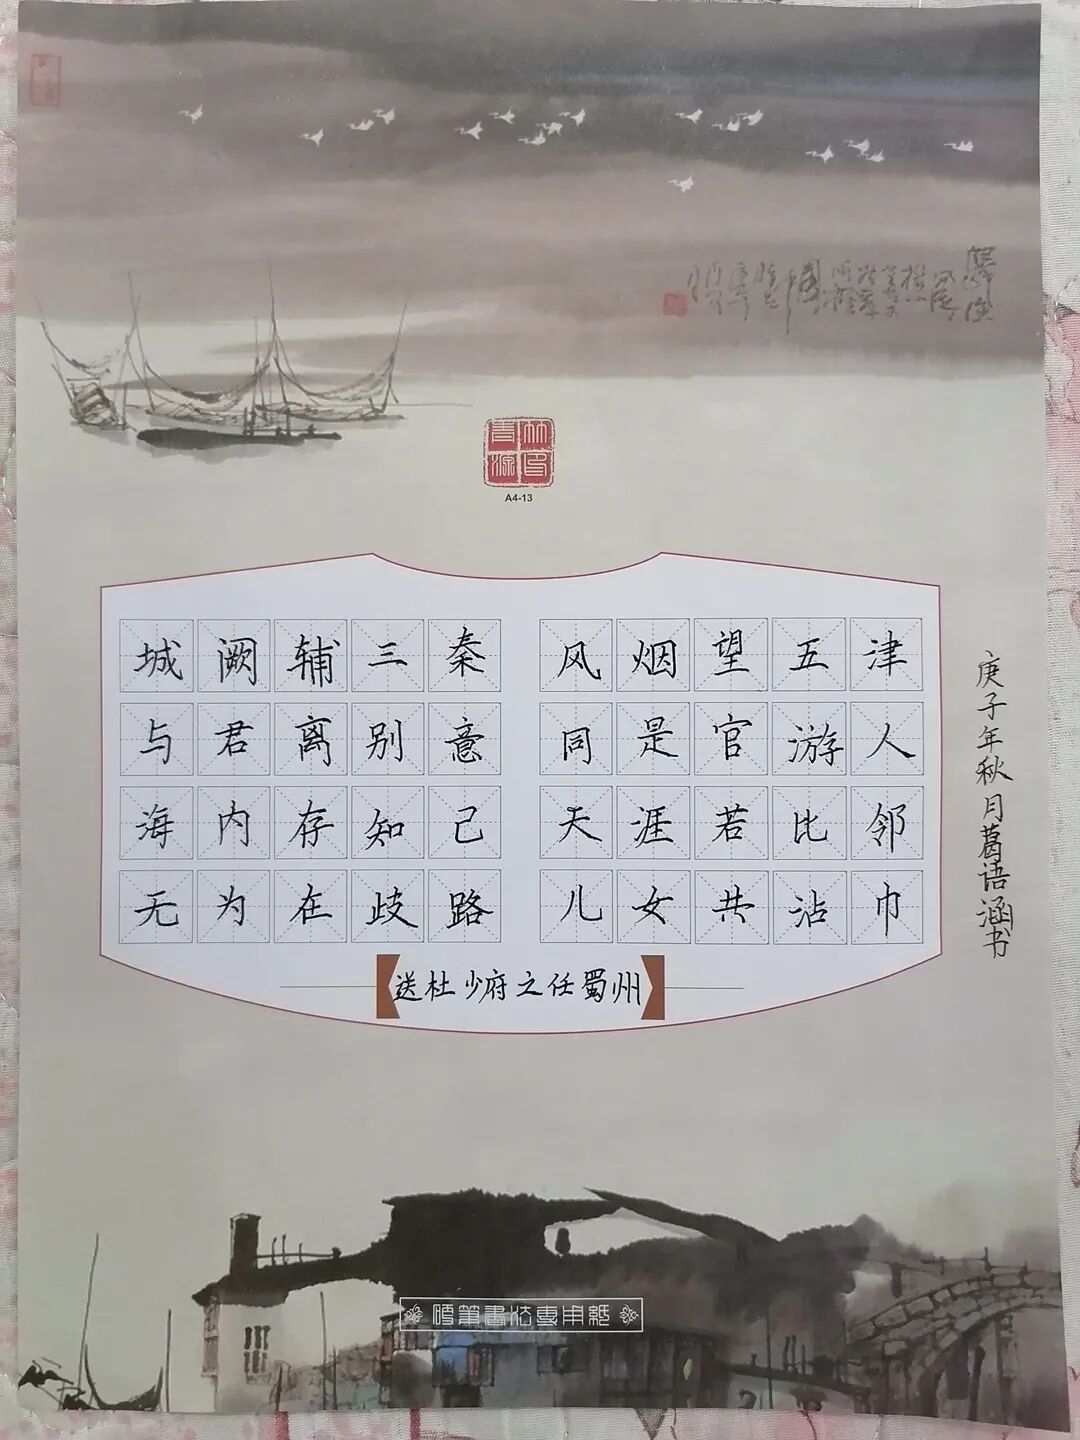 A4-13
城阙辅三秦 风烟望五津
与君离别意 同是宦游人
海内存知己 天涯若比邻
无为在歧路 儿女共沾巾
送杜少府之任蜀州
庚子年秋月葛语涵书
硬筆書法專用紙